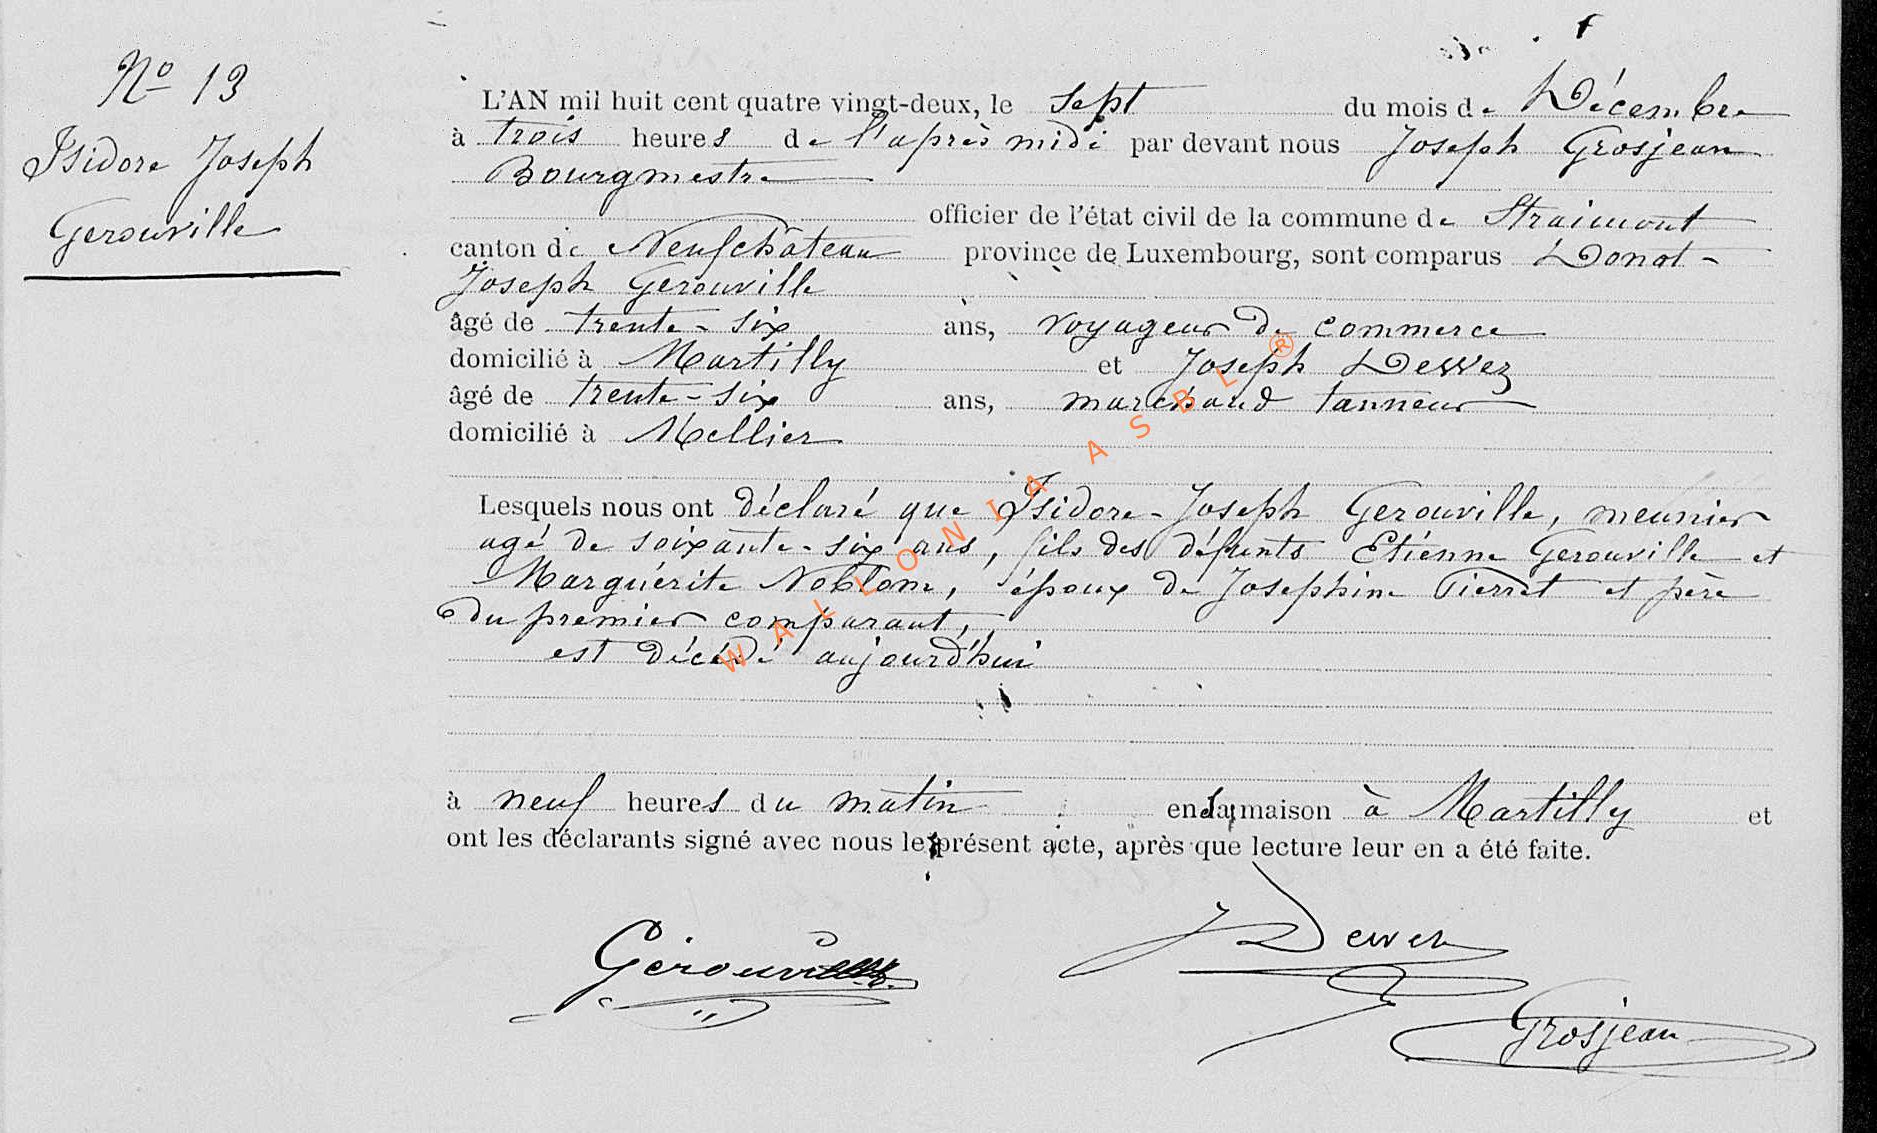 No 13
Isidore Joseph
Gerouville
L'AN mil huit cent quatre vingt-deux, le sept du mois de Décembre
à trois heures de l'après midi par devant nous Joseph Grosjean
Bourgmestre
officier de l'état civil de la commune de Straimont
canton de Neufchâteau province de Luxembourg, sont comparus Donat-
Joseph Gerouville
âgé de trente-six ans, voyageur de commerce
domicilié à Martilly et Joseph Dewez
âgé de trente-six ans, marchand tanneur
domicilié à Mellier
Lesquels nous ont déclaré que Isidore-Joseph Gerouville, meunier
agé de soixante-six ans, fils des défunts Etienne Gerouville et
Marguérite Noblom, époux de Josephine Pierret et père
du premier comparant,
est décédé aujourd'hui
à neuf heures du matin en sa maison à Martilly et
ont les déclarants signé avec nous le présent acte, après que lecture leur en a été faite.
Gérouville
J Dewez
Grosjean
WALLONIA ASBL ®